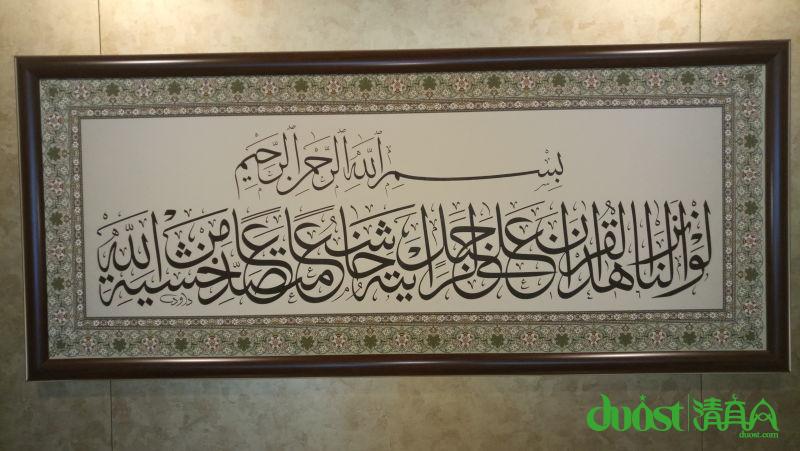 بسم الله الرحمن الرحيم
لو انزلنا هذا القران على جبل لرايته خاشعا متصدعا من خشية الله
داود
duost 清真网
duost.com